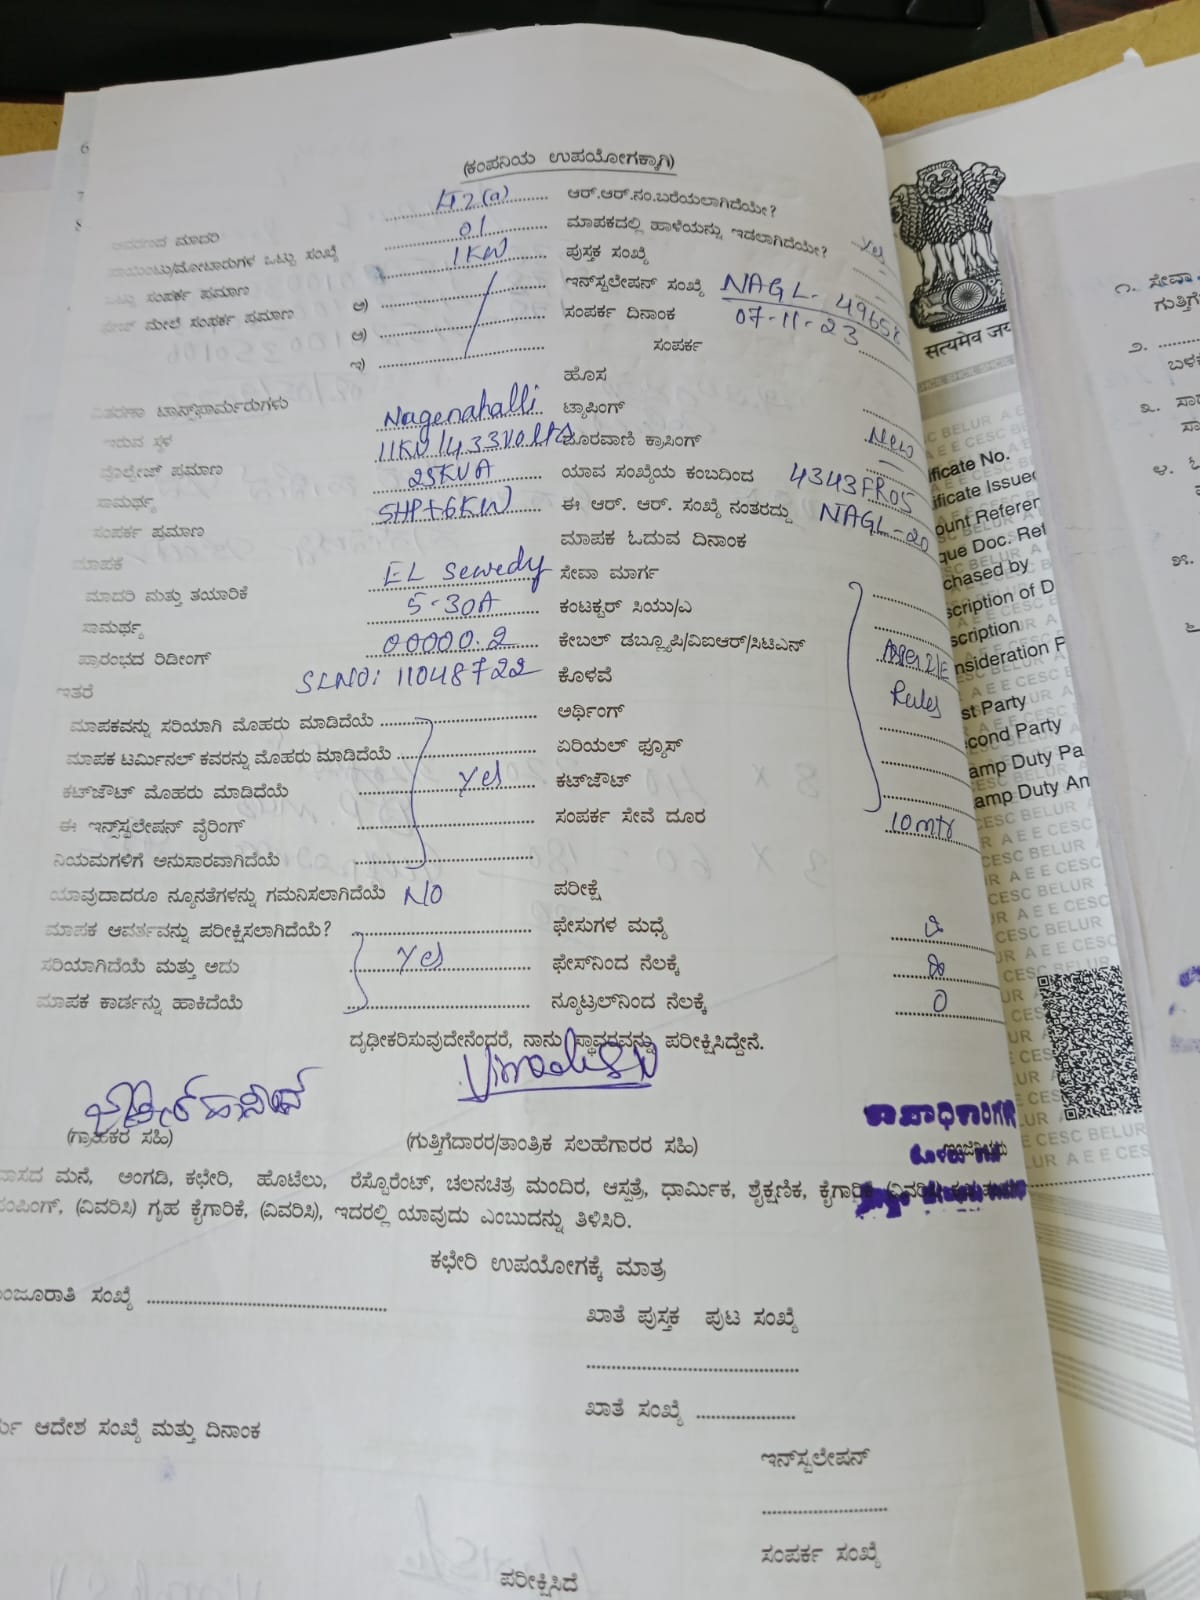 (ಕಂಪನಿಯ ಉಪಯೋಗಕ್ಕಾಗಿ)
ಆವರಣದ ಮಾದರಿ LT2(a) ಆರ್.ಆರ್.ನಂ.ಬರೆಯಲಾಗಿದೆಯೇ?
ಪಾಯಿಂಟು/ಮೋಟಾರುಗಳ ಒಟ್ಟು ಸಂಖ್ಯೆ 01 ಮಾಪಕದಲ್ಲಿ ಹಾಳೆಯನ್ನು ಇಡಲಾಗಿದೆಯೇ? Yes
ಒಟ್ಟು ಸಂಪರ್ಕ ಪ್ರಮಾಣ 1KW ಪುಸ್ತಕ ಸಂಖ್ಯೆ
ಫೇಜ್ ಮೇಲೆ ಸಂಪರ್ಕ ಪ್ರಮಾಣ ಅ) ಇನ್‌ಸ್ಟಲೇಷನ್ ಸಂಖ್ಯೆ NAGL-49658
ಆ) ಸಂಪರ್ಕ ದಿನಾಂಕ 07-11-23
ಇ) ಸಂಪರ್ಕ
ಹೊಸ
ವಿತರಣಾ ಟ್ರಾನ್ಸ್‌ಫಾರ್ಮರುಗಳು
ಇರುವ ಸ್ಥಳ Nagenahalli ಟ್ಯಾಪಿಂಗ್ New
ವೋಲ್ಟೇಜ್ ಪ್ರಮಾಣ 11KV/433Volts ದೂರವಾಣಿ ಕ್ರಾಸಿಂಗ್
ಸಾಮರ್ಥ್ಯ 25KVA ಯಾವ ಸಂಖ್ಯೆಯ ಕಂಬದಿಂದ 4343FR05
ಸಂಪರ್ಕ ಪ್ರಮಾಣ 5HP+6KW ಈ ಆರ್. ಆರ್. ಸಂಖ್ಯೆ ನಂತರದ್ದು NAGL-20
ಮಾಪಕ ಮಾಪಕ ಓದುವ ದಿನಾಂಕ
ಮಾದರಿ ಮತ್ತು ತಯಾರಿಕೆ EL Sewedy ಸೇವಾ ಮಾರ್ಗ
ಸಾಮರ್ಥ್ಯ 5-30A ಕಂಟಕ್ಟರ್ ಸಿಯು/ಎ
ಪ್ರಾರಂಭದ ರಿಡೀಂಗ್ 00000.2 ಕೇಬಲ್ ಡಬ್ಲ್ಯೂಪಿ/ವಿಐಆರ್/ಸಿಟಿಎನ್
ಇತರೆ SLNO: 11048722 ಕೊಳವೆ Rules
ಮಾಪಕವನ್ನು ಸರಿಯಾಗಿ ಮೊಹರು ಮಾಡಿದೆಯೆ ಅರ್ಥಿಂಗ್
ಮಾಪಕ ಟರ್ಮಿನಲ್ ಕವರನ್ನು ಮೊಹರು ಮಾಡಿದೆಯೆ ಏರಿಯಲ್ ಫ್ಯೂಸ್
ಕಟ್‌ಔಟ್ ಮೊಹರು ಮಾಡಿದೆಯೆ Yes ಕಟ್‌ಔಟ್
ಈ ಇನ್ಸ್‌ಸ್ಟಲೇಷನ್ ವೈರಿಂಗ್ ಸಂಪರ್ಕ ಸೇವೆ ದೂರ 10mtr
ನಿಯಮಗಳಿಗೆ ಅನುಸಾರವಾಗಿದೆಯೆ
ಯಾವುದಾದರೂ ನ್ಯೂನತೆಗಳನ್ನು ಗಮನಿಸಲಾಗಿದೆಯೆ NO ಪರೀಕ್ಷೆ
ಮಾಪಕ ಆವರ್ತವನ್ನು ಪರೀಕ್ಷಿಸಲಾಗಿದೆಯೆ? ಫೇಸುಗಳ ಮಧ್ಯೆ
ಸರಿಯಾಗಿದೆಯೆ ಮತ್ತು ಅದು Yes ಫೇಸ್‌ನಿಂದ ನೆಲಕ್ಕೆ
ಮಾಪಕ ಕಾರ್ಡನ್ನು ಹಾಕಿದೆಯೆ ನ್ಯೂಟ್ರಲ್‌ನಿಂದ ನೆಲಕ್ಕೆ 0
ದೃಢೀಕರಿಸುವುದೇನೆಂದರೆ, ನಾನು ಸ್ಥಾವರವನ್ನು ಪರೀಕ್ಷಿಸಿದ್ದೇನೆ.
(ಗ್ರಾಹಕರ ಸಹಿ) (ಗುತ್ತಿಗೆದಾರರ/ತಾಂತ್ರಿಕ ಸಲಹೆಗಾರರ ಸಹಿ)
ವಾಸದ ಮನೆ, ಅಂಗಡಿ, ಕಛೇರಿ, ಹೊಟೆಲು, ರೆಸ್ಟೊರೆಂಟ್, ಚಲನಚಿತ್ರ ಮಂದಿರ, ಆಸ್ಪತ್ರೆ, ಧಾರ್ಮಿಕ, ಶೈಕ್ಷಣಿಕ, ಕೈಗಾರಿಕೆ (ವಿವರಿಸಿ)
ಪಂಪಿಂಗ್, (ವಿವರಿಸಿ) ಗೃಹ ಕೈಗಾರಿಕೆ, (ವಿವರಿಸಿ), ಇದರಲ್ಲಿ ಯಾವುದು ಎಂಬುದನ್ನು ತಿಳಿಸಿರಿ.
ಕಛೇರಿ ಉಪಯೋಗಕ್ಕೆ ಮಾತ್ರ
ಮಂಜೂರಾತಿ ಸಂಖ್ಯೆ
ಖಾತೆ ಪುಸ್ತಕ ಪುಟ ಸಂಖ್ಯೆ
ಖಾತೆ ಸಂಖ್ಯೆ
ಆದೇಶ ಸಂಖ್ಯೆ ಮತ್ತು ದಿನಾಂಕ
ಇನ್‌ಸ್ಟಲೇಷನ್
ಸಂಪರ್ಕ ಸಂಖ್ಯೆ
ಪರೀಕ್ಷಿಸಿದೆ
ಸತ್ಯಮೇವ ಜಯ
ificate No.
ificate Issued
ount Referen
que Doc. Ref
chased by
scription of D
scription
nsideration P
st Party
cond Party
amp Duty Pa
amp Duty An
೧. ಸೇವಾ
ಗುತ್ತಿಗೆ
೨.
ಬಳಕ
೩. ಸಾರ
ಸಾ
೪.